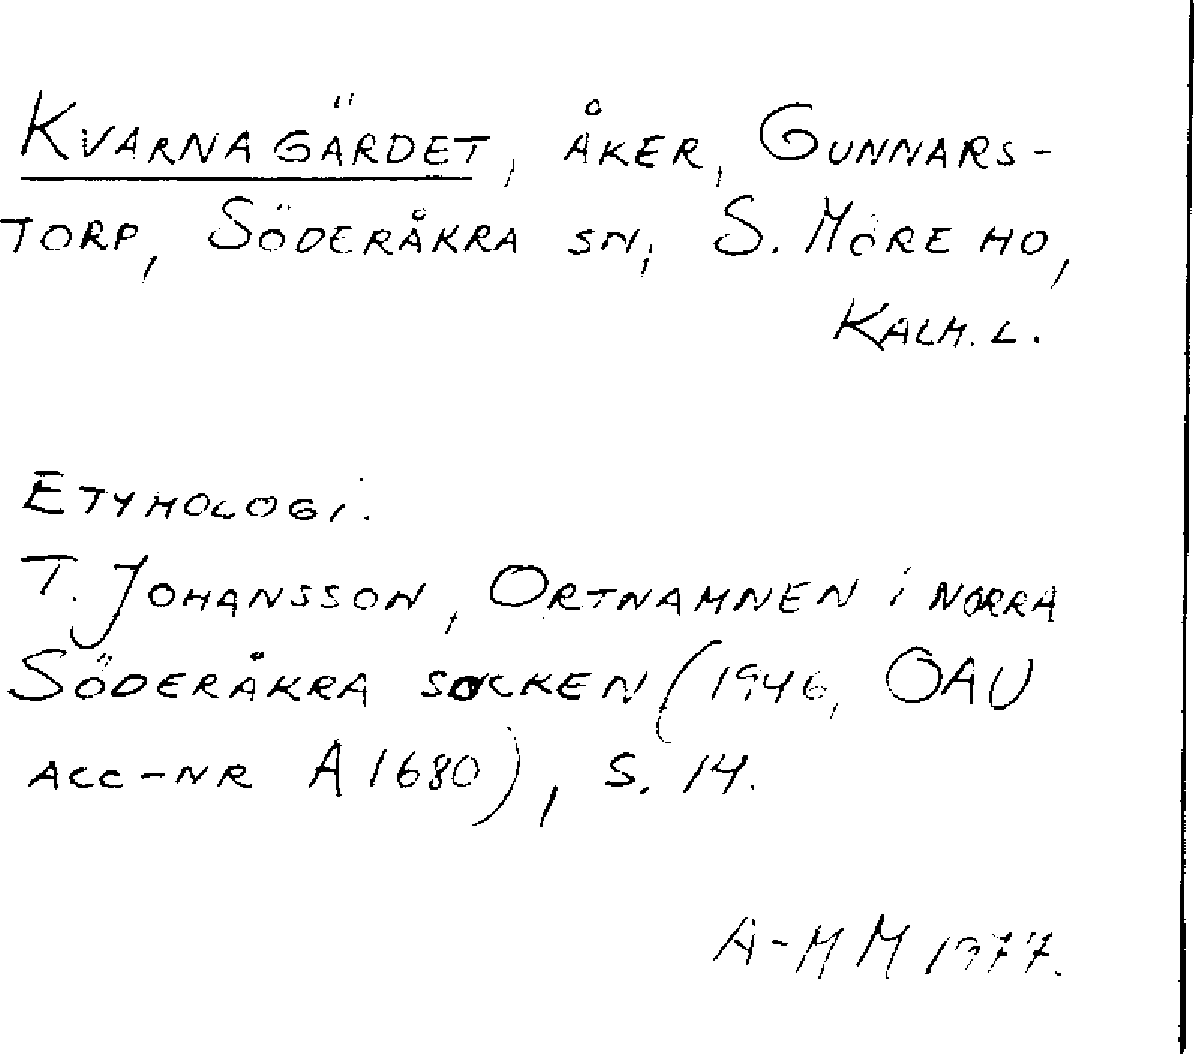 KVARNAGÄRDET, ÅKER, GUNNARS-
TORP, SÖDERÅKRA SN, S. MÖRE HD,
KALM. L.
ETYMOLOGI.
T. JOHANSSON, ORTNAMNEN i NORRA
SÖDERÅKRA SOCKEN (1946, OAU
ACC-NR A 1680), S. 14.
A-M M 1977.